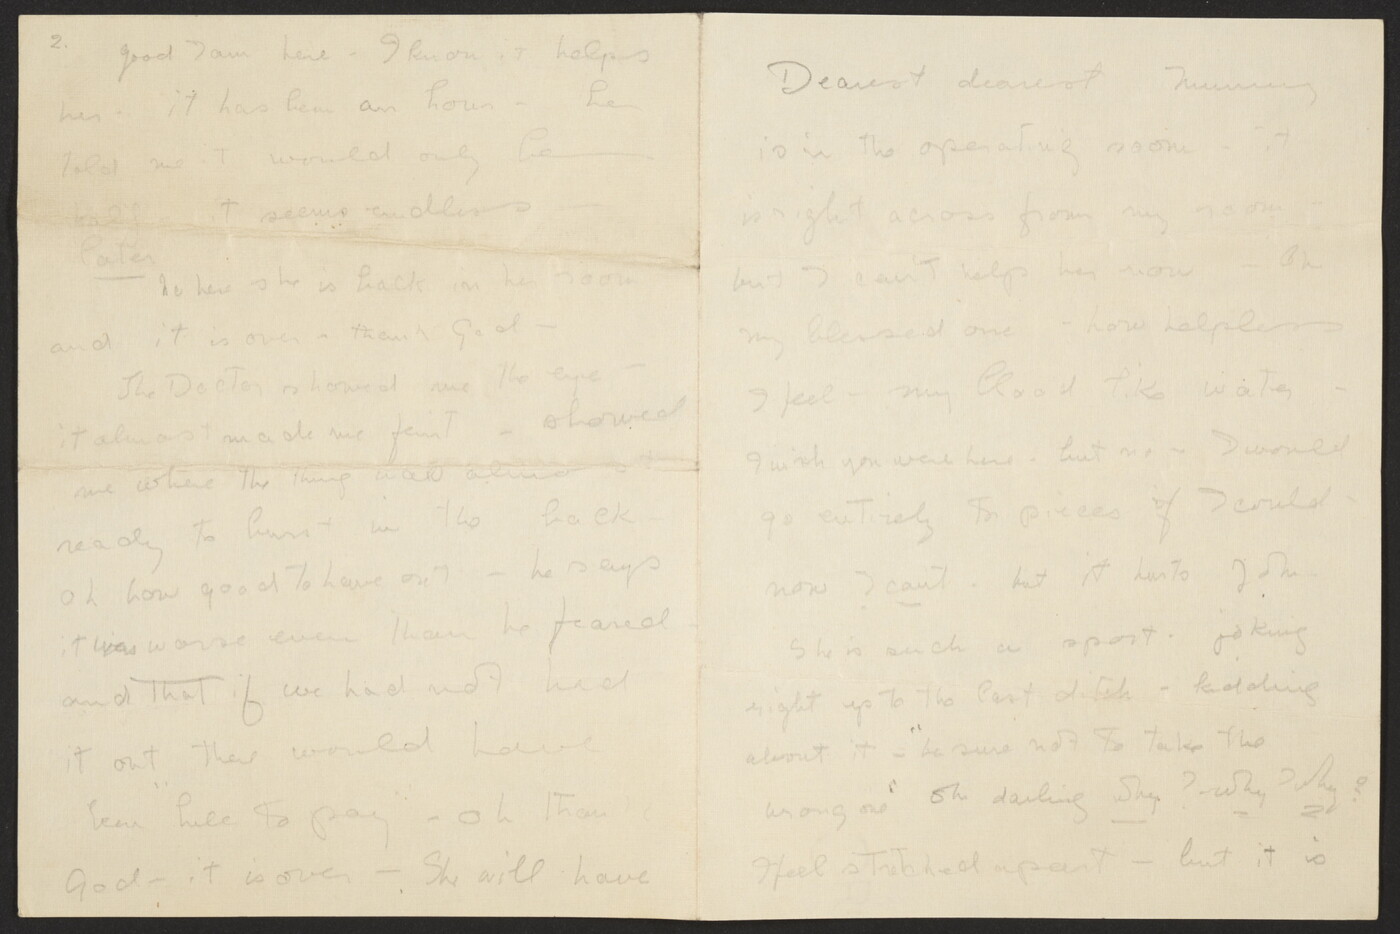 Dearest dearest Mummy
is in the operating room - it
is right across from my room -
but I can't help her now - Oh
my blessed one - how helpless
I feel - my blood like water -
I wish you were here - but no - I would
go entirely to pieces if I could -
now I can't - but it has to
She is such a sport - joking
right up to the last ditch - kidding
about it - "be sure not to take the
wrong one" Oh darling why? - why? why?
I feel stretched apart - but it is
2.
good I am here - I know it helps
her - it has been an hour - he
told me it would only be
half - it seems endless -
Later
where she is back in her room
and it is over - thank God -
The Doctor showed me the eye -
it almost made me faint - showed
me where the thing was almost
ready to burst in the back -
oh how good to have out - he says
it was worse even than he feared -
and that if we had not had
it out there would have
been "hell to pay" - oh thank
God - it is over - She will have